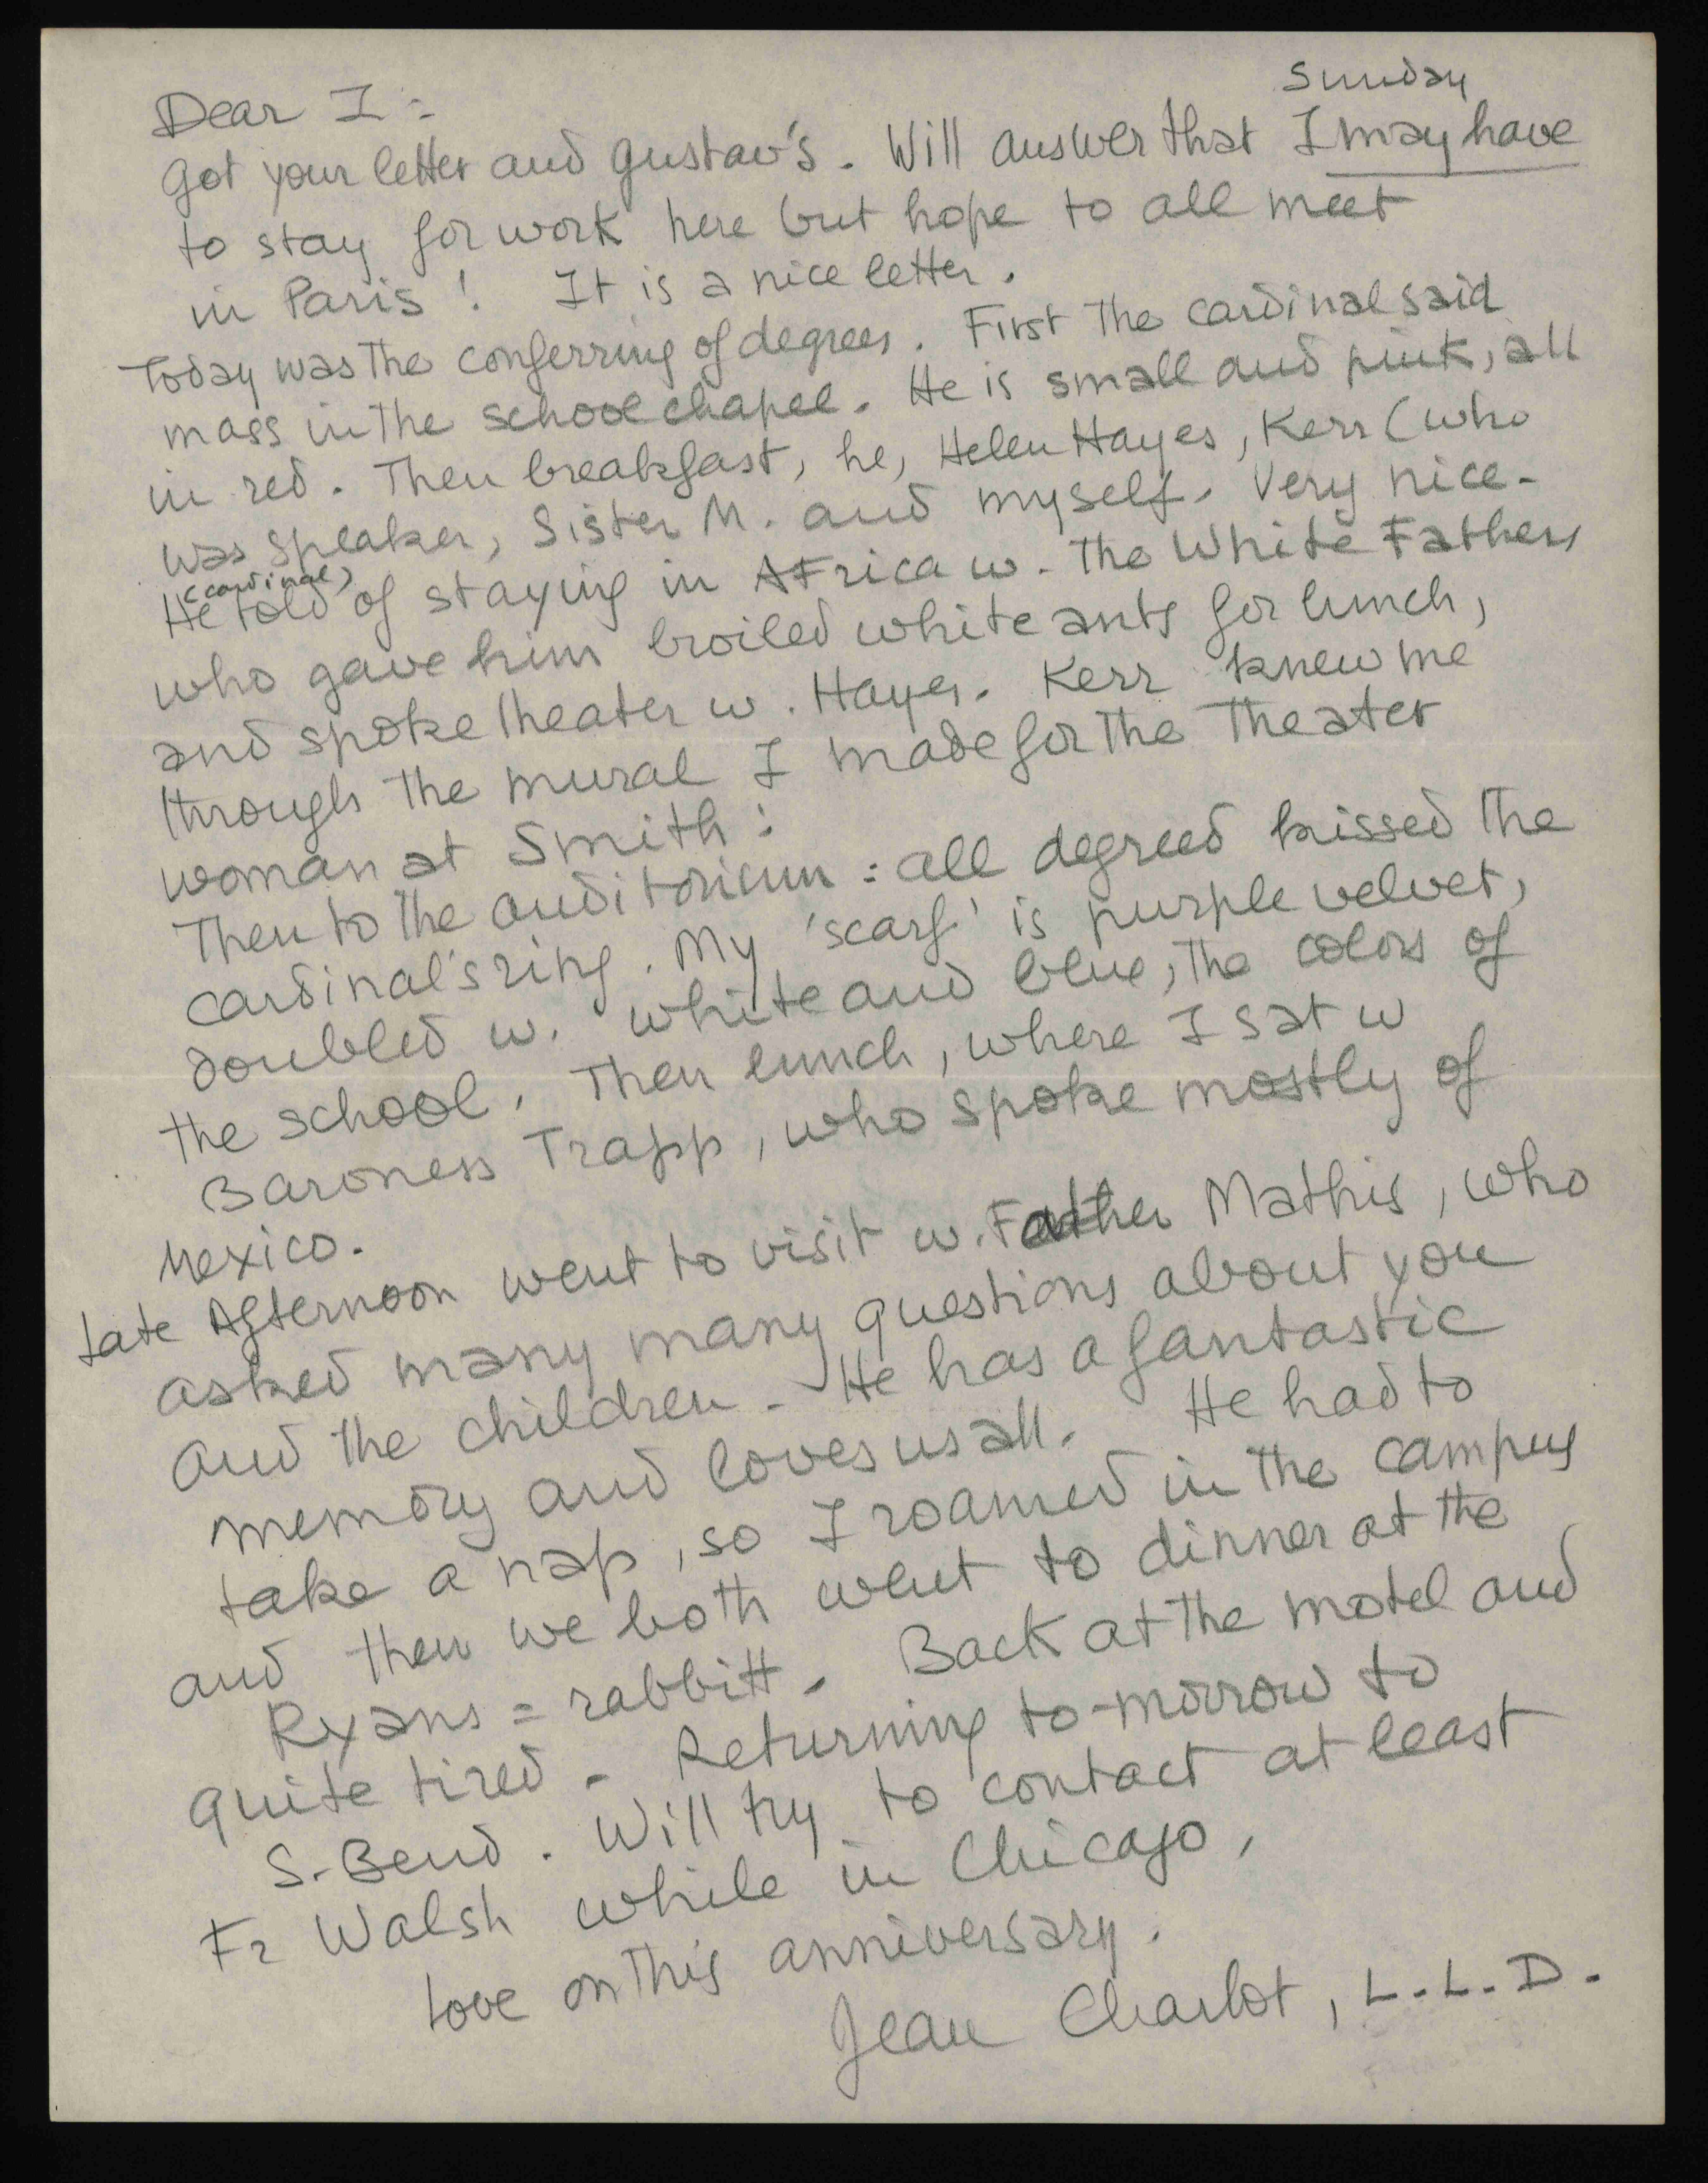 Sunday
Dear Z :
Got your letter and Gustav's. Will answer that I may have
to stay for work here but hope to all meet
in Paris ! It is a nice letter.
Today was the conferring of degrees. First the cardinal said
mass in the school chapel. He is small and pink, all
in red. Then breakfast, he, Helen Hayes, Kerr (who
was speaker, Sister M. and myself. Very nice.
(cardinal)
He told of staying in Africa w. the White Fathers
who gave him broiled white ants for lunch,
and spoke theater w. Hayes. Kerr knew me
through the mural I made for the theater
woman at Smith :
Then to the auditorium : all degreed kissed the
cardinal's ring. My 'scarf' is purple velvet,
doubled w. white and blue, the colors of
the school. Then lunch, where I sat w
Baroness Trapp, who spoke mostly of
Mexico.
Late Afternoon went to visit w. Father Mathis, who
asked many many questions about you
and the children. He has a fantastic
memory and loves us all. He had to
take a nap, so I roamed in the campus
and then we both went to dinner at the
Ryans = rabbitt. Back at the motel and
quite tired. Returning to-morrow to
S. Bend. Will try to contact at least
Fr Walsh while in Chicago,
Love on this anniversary.
Jean Charlot, L.L.D.